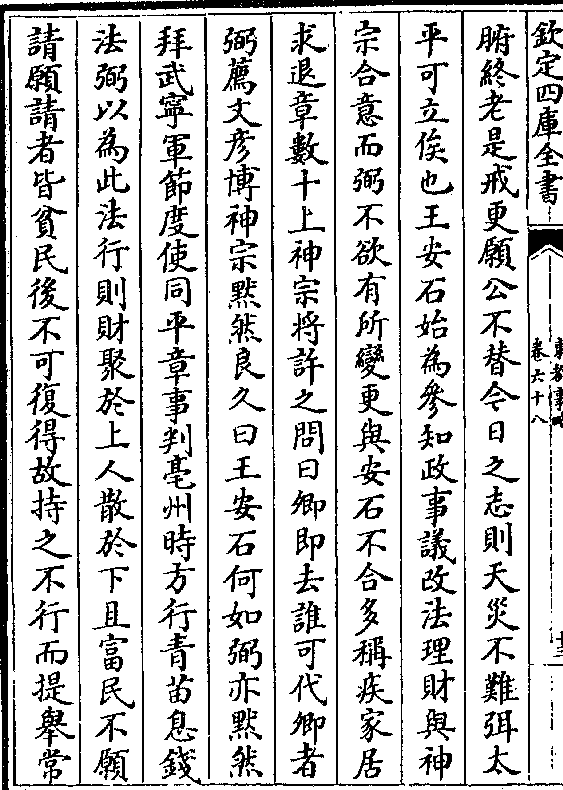 欽定四庫全書
卷六十八
腑終老是戒更願公不替今日之志則天災不難弭太
平可立俟也王安石始為參知政事議改法理財與神
宗合意而弼不欲有所變更與安石不合多稱疾家居
求退章數十上神宗将許之問曰卿即去誰可代卿者
弼薦文彦博神宗黙然良久曰王安石何如弼亦黙然
拜武寧軍節度使同平章事判亳州時方行青苗息錢
法弼以為此法行則財聚於上人散於下且富民不願
請願請者皆貧民後不可復得故持之不行而提舉常